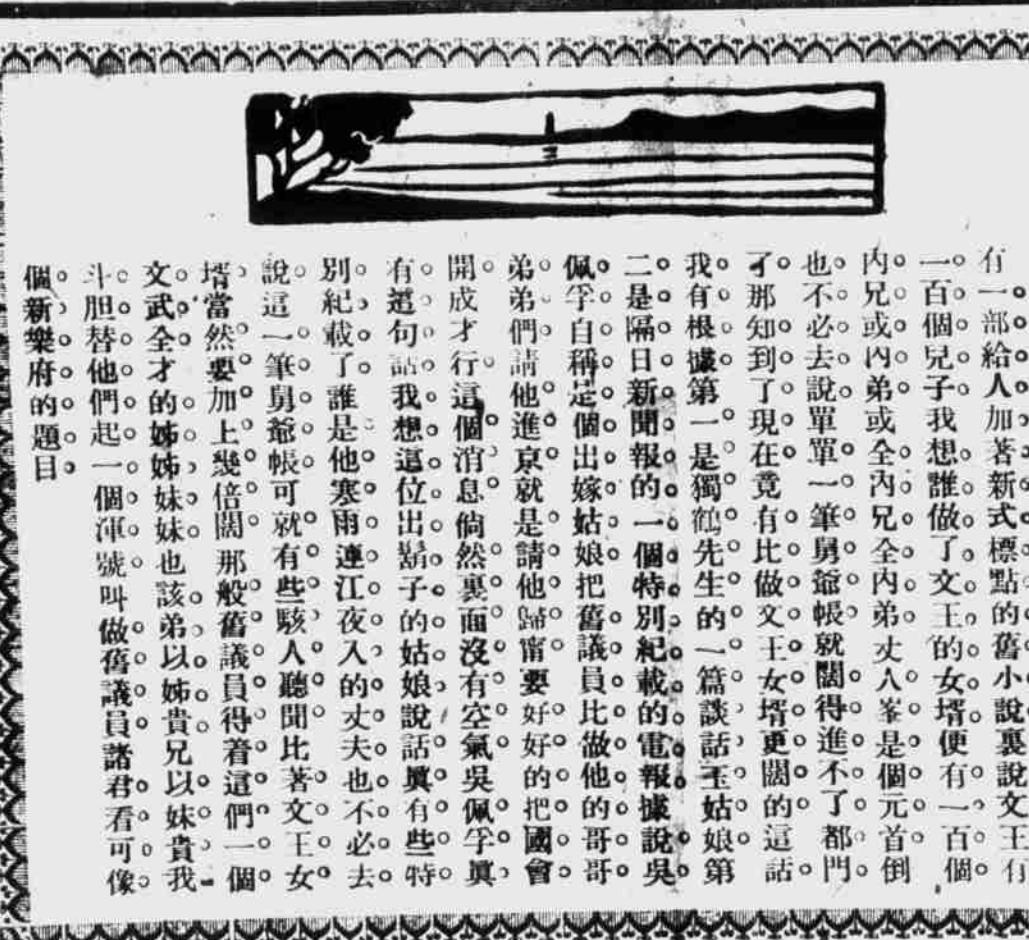 有一部給人加著新式標點的舊小說裏說文王有
一百個兒子我想誰做了文王的女壻便有一百個
內兄或內弟或全內兄全內弟丈人峯是個元首倒
也不必去說單單一筆舅爺帳就闊得進不了都門
了那知到了現在竟有比做文王女壻更闊的這話
我有根據第一是獨鶴先生的一篇談話玉姑娘第
二是隔日新聞報的一個特別紀載的電報據說吳
佩孚自稱是個出嫁姑娘把舊議員比做他的哥哥
弟弟們請他進京就是請他歸甯要好好的把國會
開成才行這個消息倘然裏面沒有空氣吳佩孚眞
有這句話我想這位出鬍子的姑娘說話眞有些特
別紀載了誰是他寒雨連江夜入的丈夫也不必去
說這一筆舅爺帳可就有些駭人聽聞比著文王女
壻當然要加上幾倍闊那般舊議員得着這們一個
文武全才的姊姊妹妹也該弟以姊貴兄以妹貴我
斗胆替他們起一個渾號叫做舊議員諸君看可像
個新樂府的題目